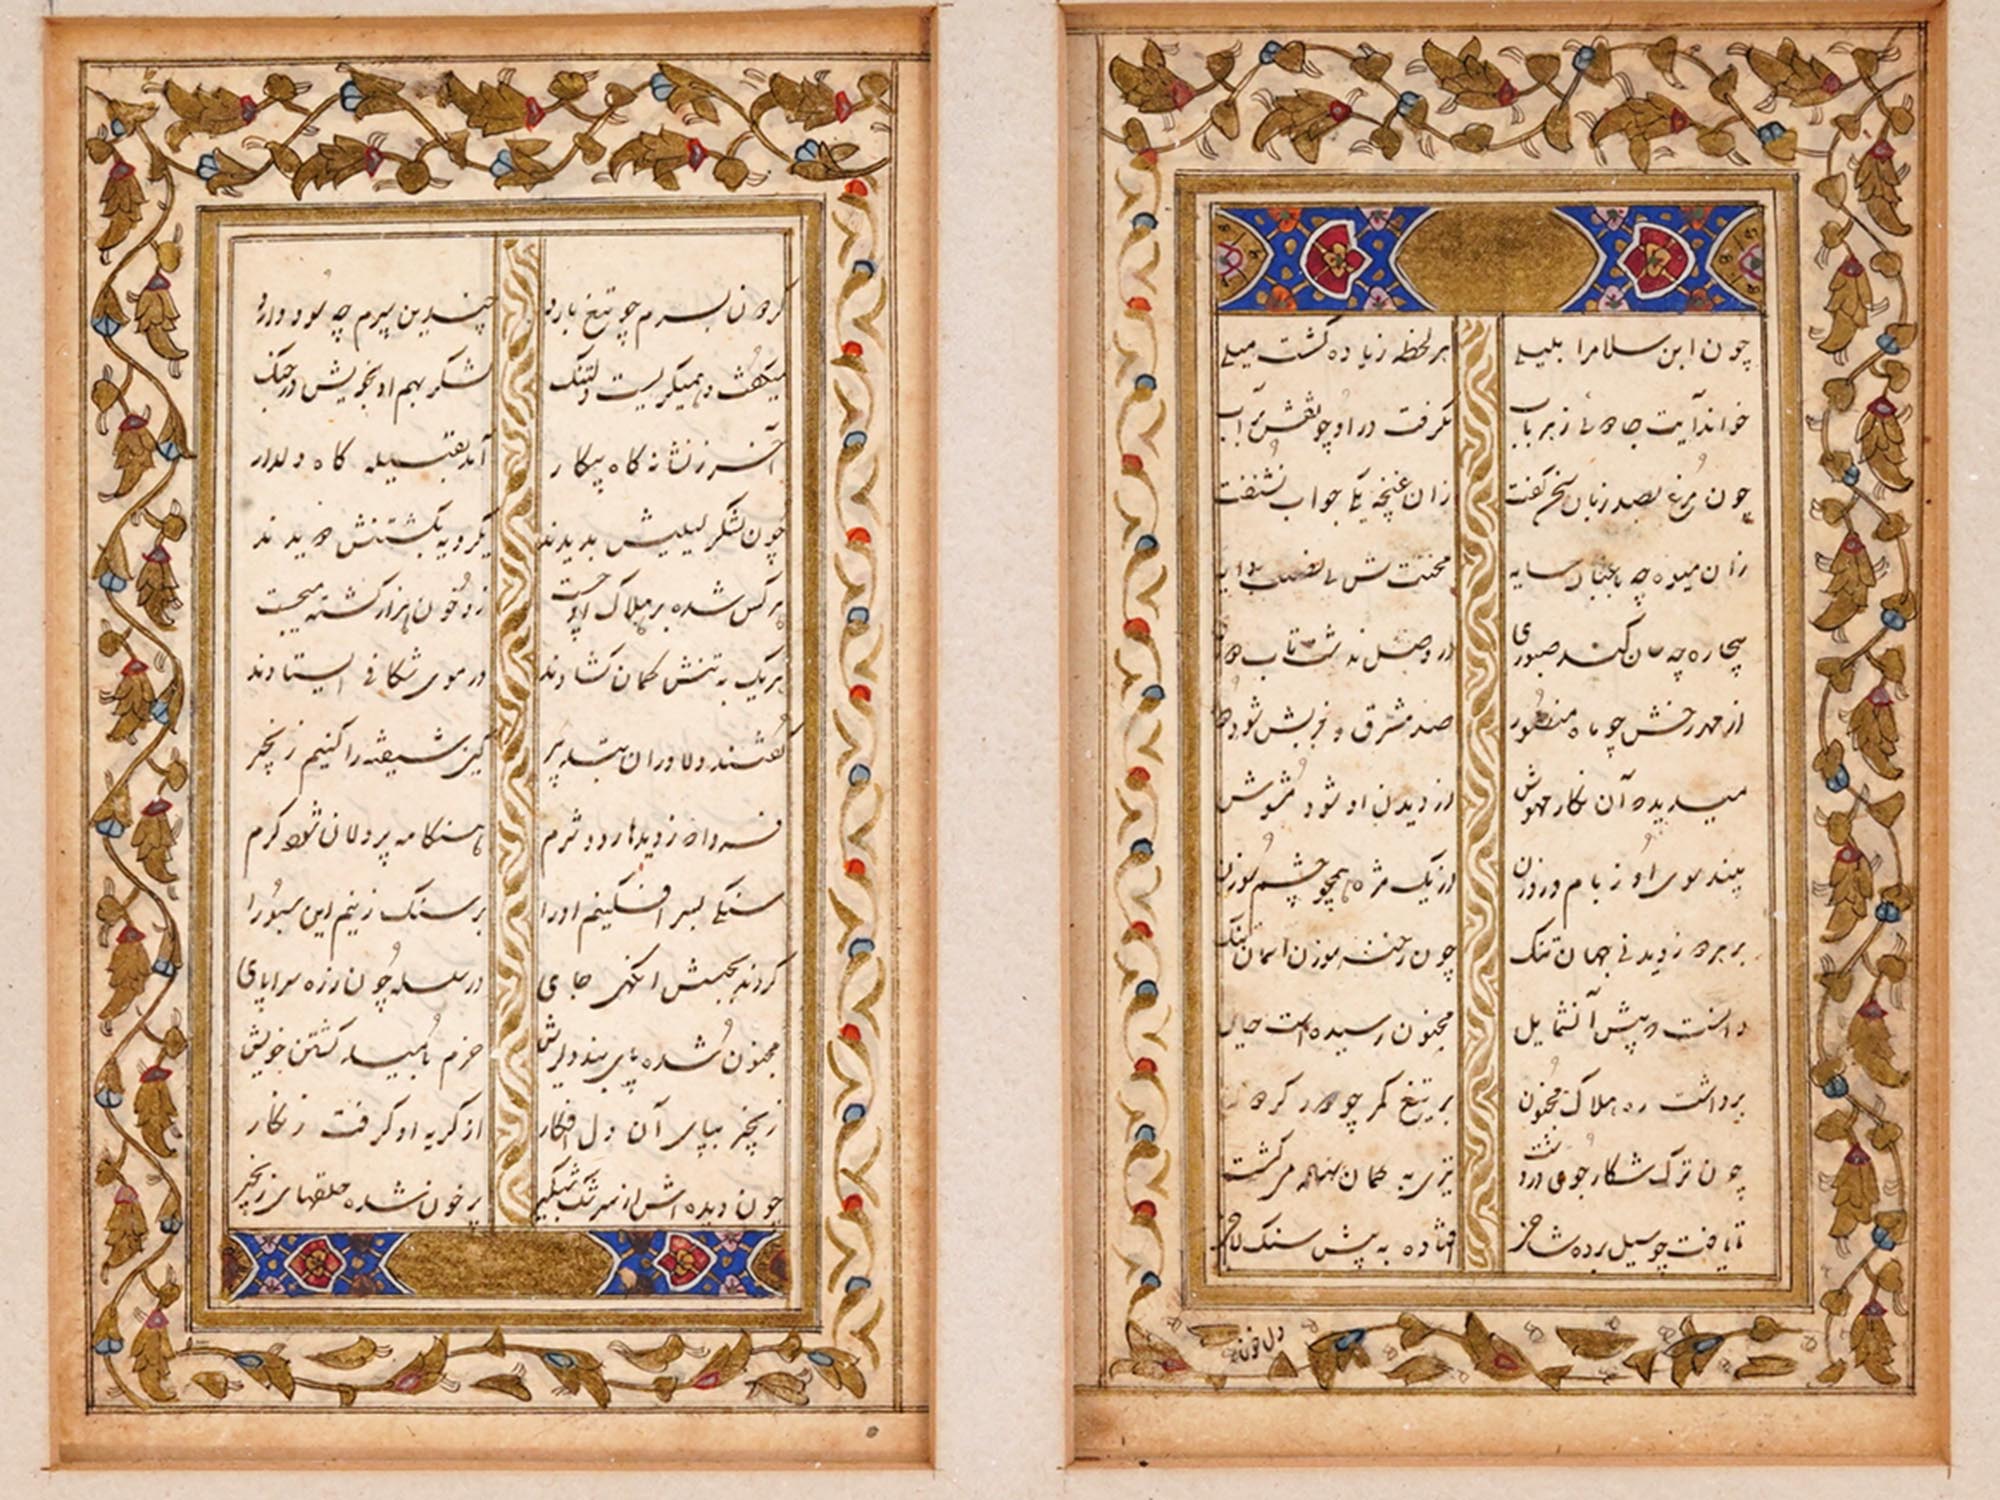 چون ابن سلام را بلیلی هر لحظه زیاده گشت میلی
خواند آیت جادوئی ز هر باب نگرفت در او چو نقش بر آب
چون مرغ بصد زبان سخن گفت زان غنچه یکی جواب نشنفت
زان میوه چه باغبان سایه محنت کش بی نصیب
بیچاره چه سان کند صبوری در وصل نداشت تاب دوری
از مهر رخش چو ماه منظور صد مشرق و مغربش شود
میدید که آن نگار مهوش از دیدن او شود مشوش
بیند سوی او ز بام و روزن از یک مژه همچو چشم سوزن
بر برد ز دیدنی جهان تنگ چون رخنه سوزن آسمان تنگ
دانست که پیش آن شمایل مجنون رسیده است حایل
برداشت ره هلاک مجنون بر تیغ کمر چو در گردون
چون ترک شکار جوی در دشت تیری به کمان نهاده میگشت
تا یافت چو سیل برده شاخی افتاده به پیش سنگ لاخی
دل خونش
گردون بسرم چو تیغ بارد چندین سپرم چه سود دارد
میگفت و همیگریست دلتنگ لشکر بهم او بخویش در جنگ
آخر ز نشانه گاه پیکار آمد بقبیله گاه دلدار
چون لشکر لیلیش بدیدند یکرویه بکشتنش دویدند
هر کس شده بر هلاک او چست زو خون هزار کشته میجست
هر یک به تنش کمان گشادند در موی شکافی ایستادند
گفتند دلاوران به تدبیر کین شیفته را کنیم زنجیر
فردا که ز دیدها رود شرم هنگامه پردلان شود گرم
سنگی بسر افکنیم او را بر سنگ زنیم این سبو را
کردند بحبس انگهی جای در سلسله چون زره سراپای
مجنون شده پای بند دلریش خرم بامید کشتن خویش
زنجیر بپای آن دل افکار از گریه او گرفت زنگار
چون دیده اش از سرشک شبگیر پر خون شده حلقهای زنجیر